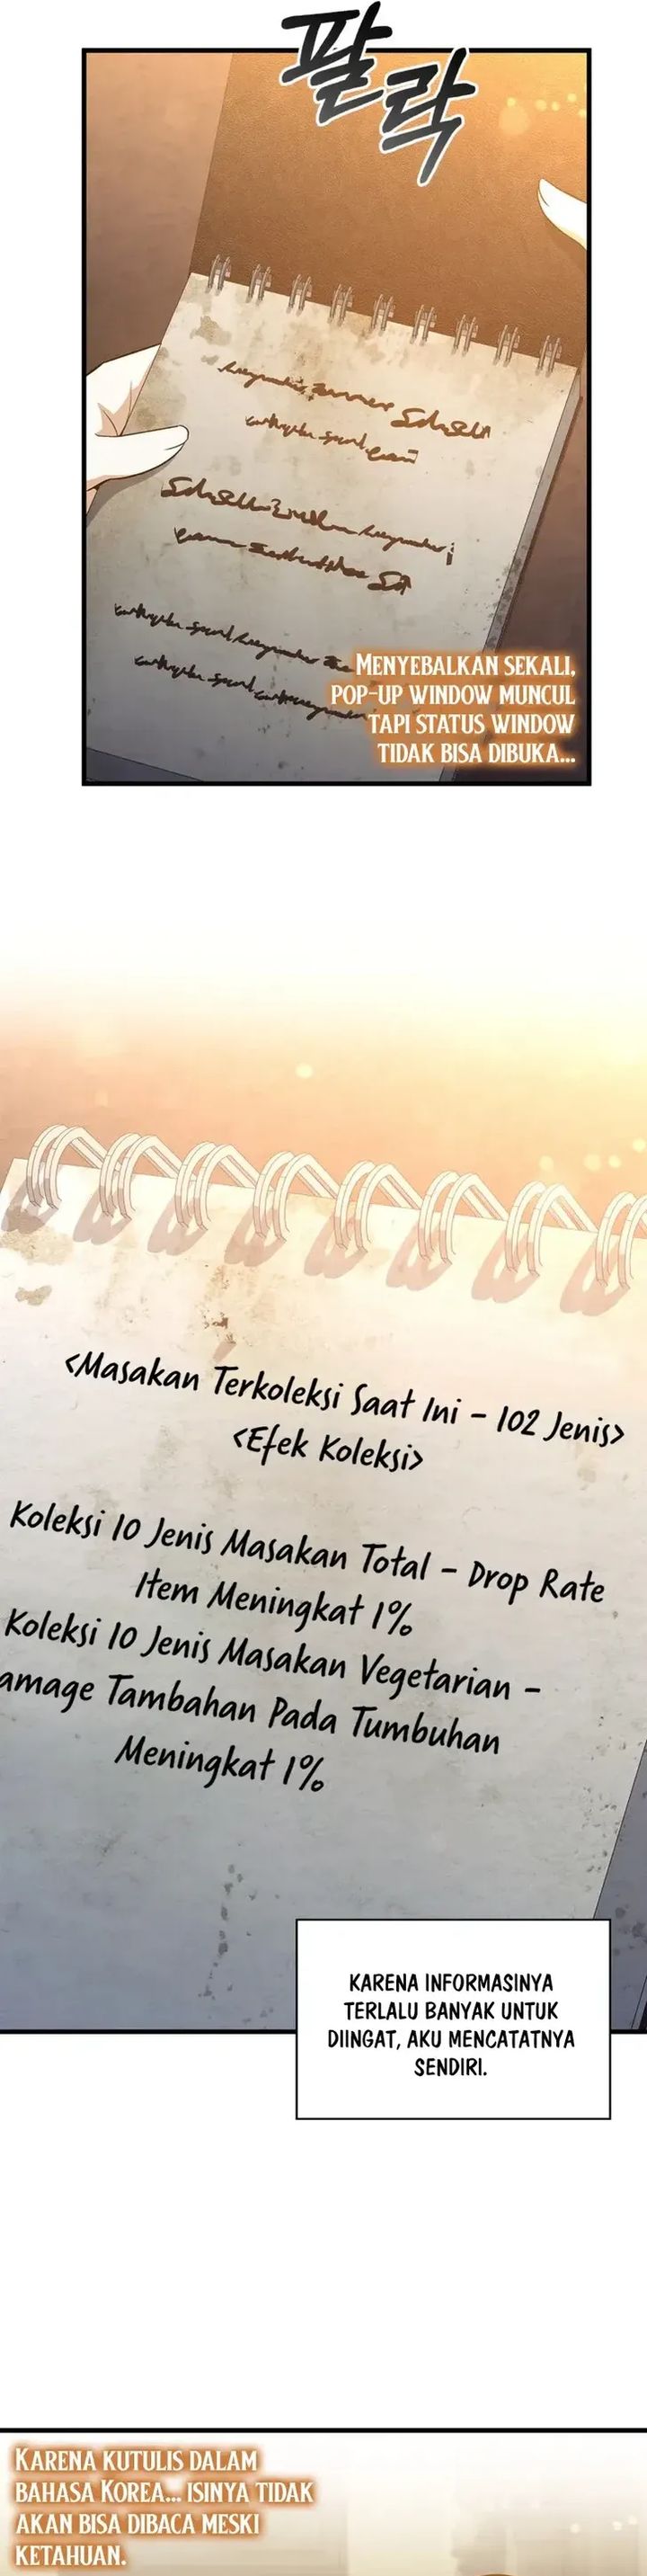 팔락
MENYEBALKAN SEKALI,
POP-UP WINDOW MUNCUL
TAPI STATUS WINDOW
TIDAK BISA DIBUKA...
<Masakan Terkoleksi Saat Ini - 102 Jenis>
<Efek Koleksi>
Koleksi 10 Jenis Masakan Total - Drop Rate
Item Meningkat 1%
Koleksi 10 Jenis Masakan Vegetarian -
amage Tambahan Pada Tumbuhan
Meningkat 1%
KARENA INFORMASINYA
TERLALU BANYAK UNTUK
DIINGAT, AKU MENCATATNYA
SENDIRI.
KARENA KUTULIS DALAM
BAHASA KOREA... ISINYA TIDAK
AKAN BISA DIBACA MESKI
KETAHUAN.